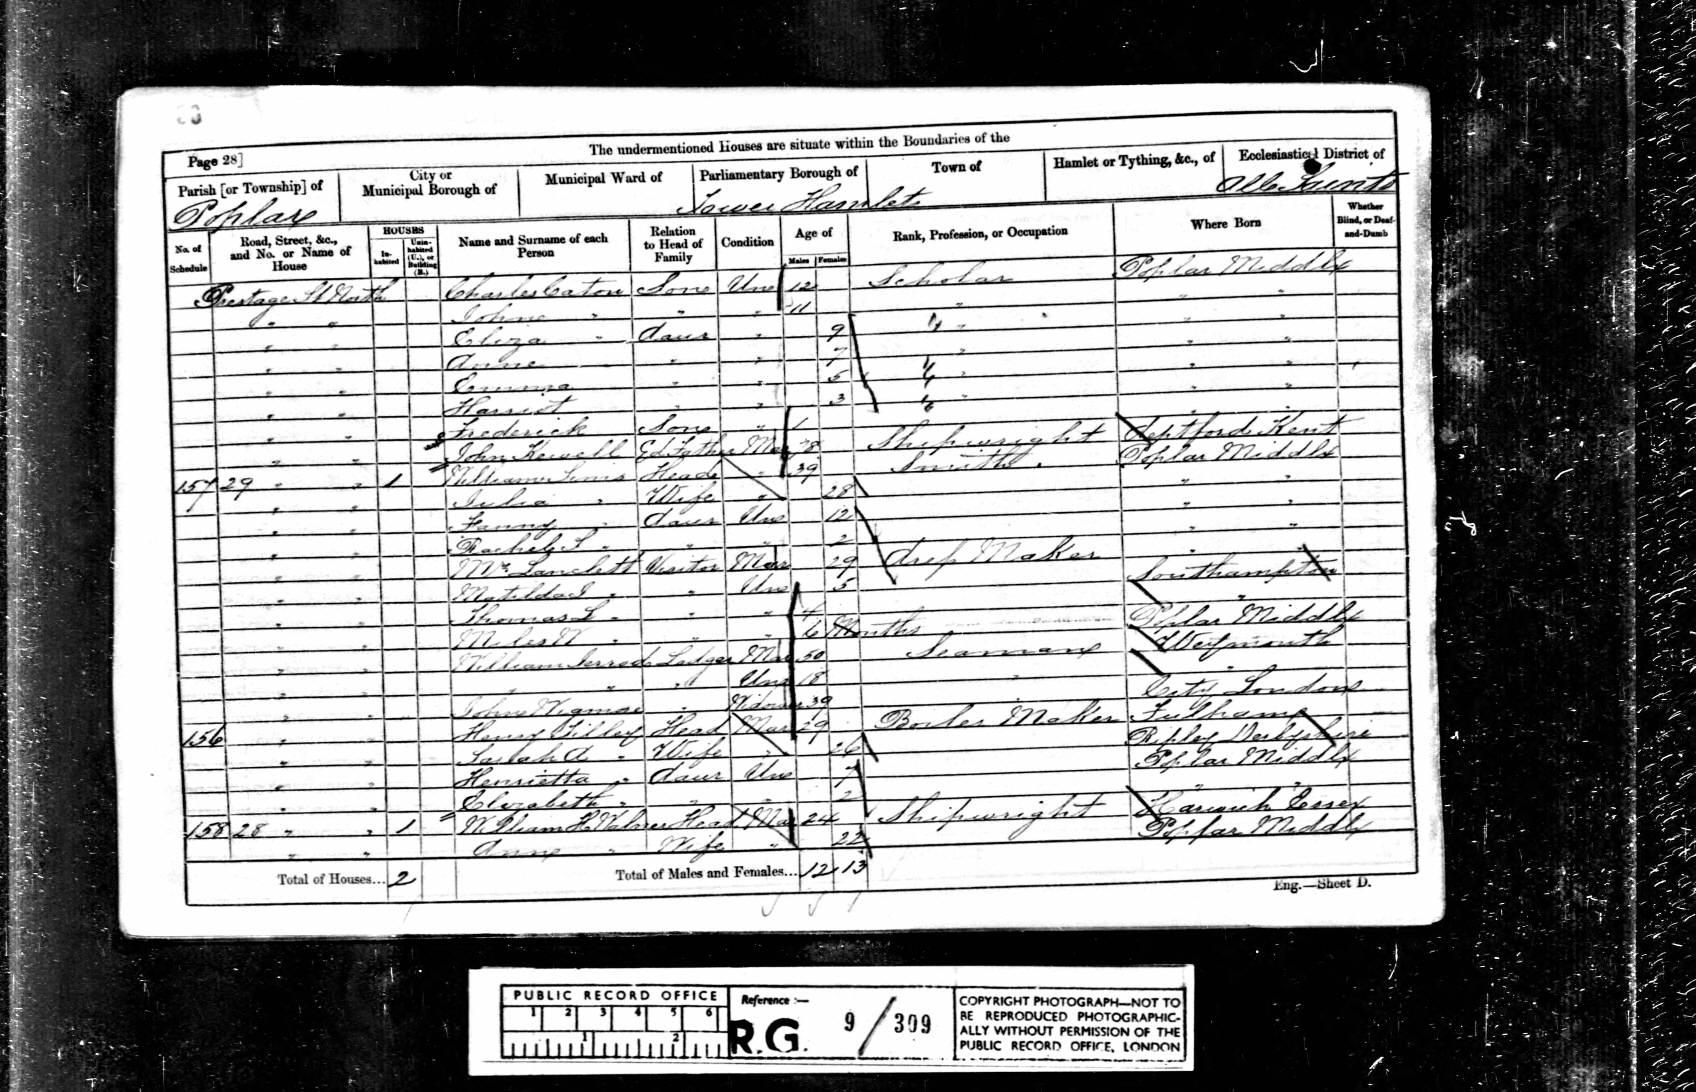 The undermentioned Houses are situate within the Boundaries of the
Page 28]
Parish [or Township] of
City or Municipal Borough of
Municipal Ward of
Parliamentary Borough of
Town of
Hamlet or Tything, &c., of
Ecclesiastical District of
Poplar
Tower Hamlets
All Saints
No. of Schedule
Road, Street, &c., and No. or Name of House
HOUSES
In-habited
Unin-habited (U.), or Building (B.)
Name and Surname of each Person
Relation to Head of Family
Condition
Age of
Males
Females
Rank, Profession, or Occupation
Where Born
Whether Blind, or Deaf-and-Dumb
Prestage St North Charles Caton Son Un 12 Scholar Poplar Middlx
" " John " " " 11 " " "
" " Eliza " daur " 9 " " "
" " Anne " " 7 " " "
" " Emma " " 5 " " "
" " Harriet " " 3 " " "
" " Frederick Son " 1 " "
" " John Kewell Father Mar 78 Shipwright Deptford Kent
157 29 " " 1 William Sims Head " 39 Smith Poplar Middlx
" " Julia " Wife " 28 " "
" " Fanny " daur Un 12 " "
" " Rachel S " " " 2 " "
" " Mrs Lanclett Visitor Mar 29 Maker Southampton
" " Matilda J " " Un 5 "
" " Thomas L " " " 4 Poplar Middlx
" " Miles W " " " 6 Months
" " William Jerrod Lodger Mar 50 Seaman Weymouth
" " " " Un 18 " "
" " John Wigmore " Widower 39 " City London
156 " " Henry Tilley Head Mar 29 Boiler Maker Fulham
" " Sarah A " Wife " 26 Ripley Derbyshire
" " Henrietta " daur Un 7 Poplar Middlx
" " Elizabeth " " " 2 " "
158 28 " " 1 William H Head Mar 24 Shipwright Harwich Essex
" " Anne " Wife " 22 Poplar Middlx
Total of Houses... 2
Total of Males and Females... 12 13
Eng.—Sheet D.
PUBLIC RECORD OFFICE
1 2 3 4 5 6
1 2
Reference :—
R.G. 9 / 309
COPYRIGHT PHOTOGRAPH—NOT TO
BE REPRODUCED PHOTOGRAPHIC-
ALLY WITHOUT PERMISSION OF THE
PUBLIC RECORD OFFICE, LONDON